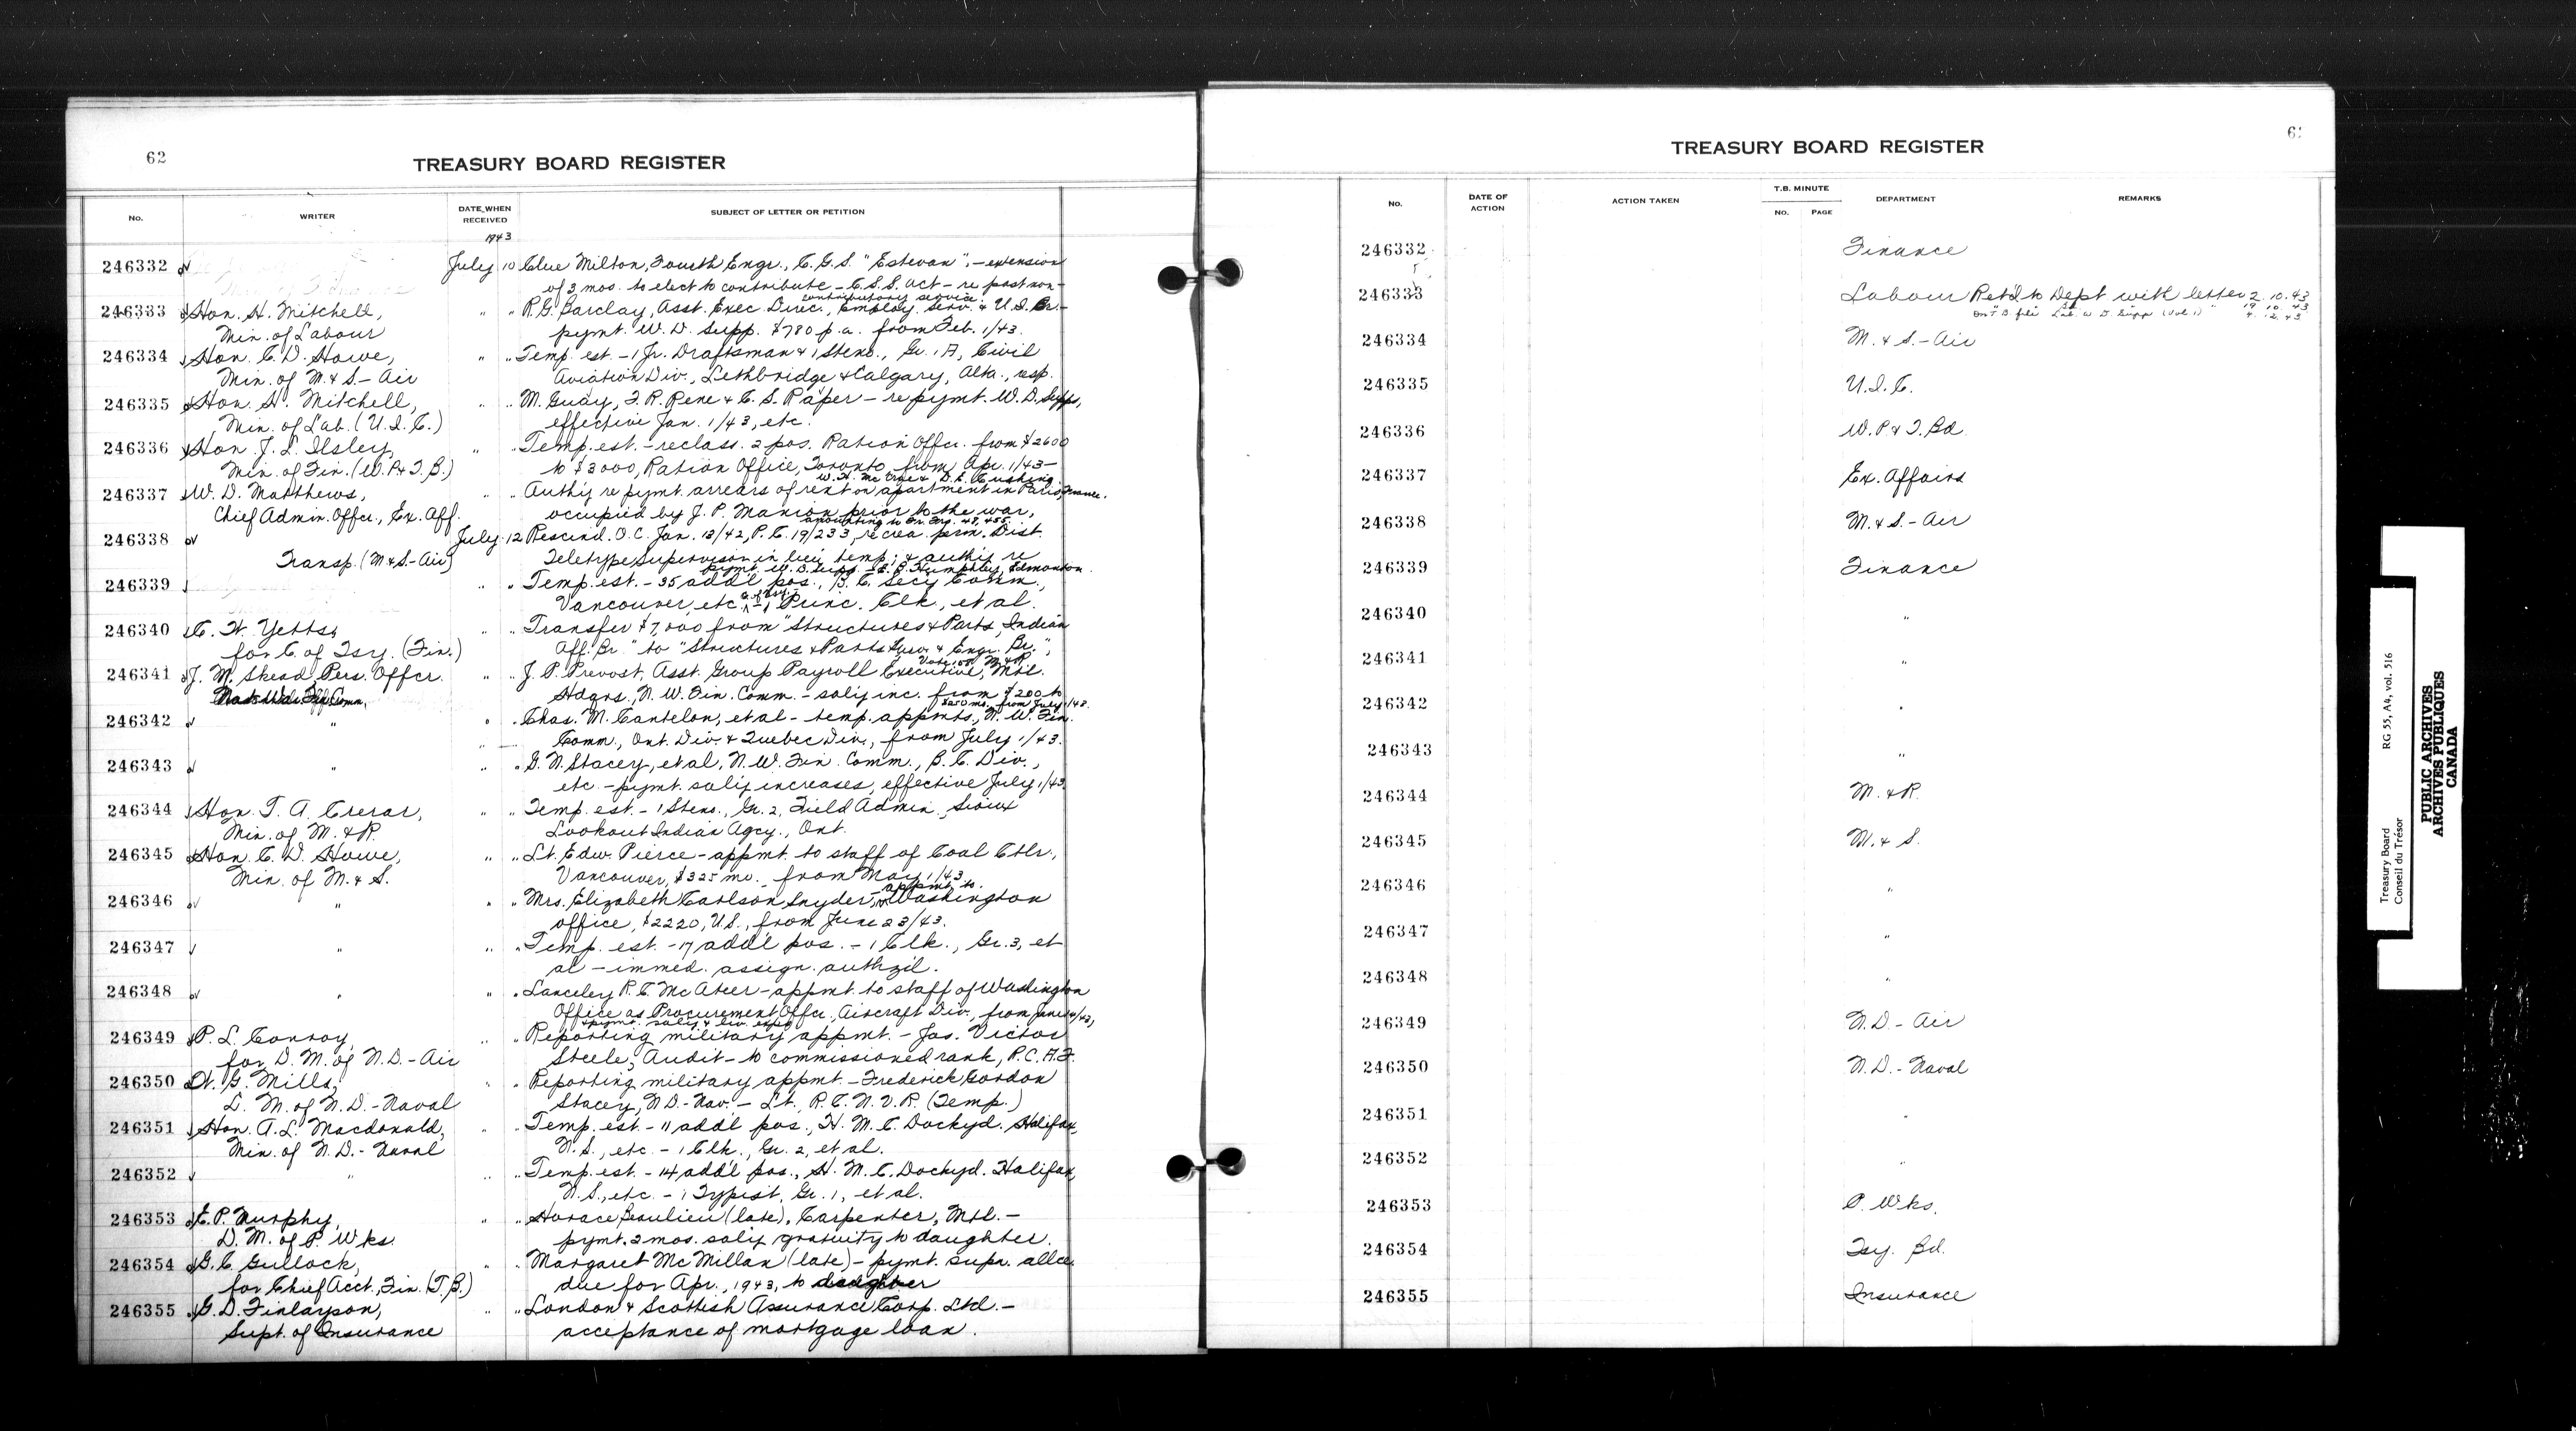 62
TREASURY BOARD REGISTER
No.
WRITER
DATE WHEN RECEIVED
SUBJECT OF LETTER OR PETITION
1943
246332 July 10 Clue Milton, Fourth Engr., C.G.S. "Estevan", - extension
of 3 mos. to elect to contribute - C.S.S. Act - re past non-
contributory service.
246333 Hon. H. Mitchell, " " R.G. Barclay, Asst. Exec. Direc., Employ. Serv. & U.I. Br. -
Min. of Labour pymt. W.D. Supp. $780 p.a. from Feb. 1/43.
246334 Hon. C. D. Howe, " " Temp. est. - 1 Jr. Draftsman & 1 Steno., Gr. 1A, Civil
Min. of M. & S. - Air Aviation Div., Lethbridge & Calgary, Alta., resp.
246335 Hon. H. Mitchell, " " M. Guay, F. R. Rene & C. S. Raper - re pymt. W. D. Supps,
Min. of Lab. (U.I.C.) effective Jan. 1/43, etc.
246336 Hon. J. L. Ilsley, " " Temp. est. - reclass. 2 pos. Ration Offcr. from $2600
Min. of Fin. (W.P. & T.B.) to $3000, Ration Office, Toronto, from Apr. 1/43 -
W. H. & D. E. Cushing.
246337 W. D. Matthews, " " Auth'y re pymt. arrears of rent on apartment in Paris, France.
Chief Admin. Offcr., Ex. Aff. occupied by J. P. Manion prior to the war,
amounting to Fr. Frs. 48,455.
246338 July 12 Rescind. O.C. Jan. 13/42, P.C. 19/233, re crea. perm. Dist.
Transp. (M & S. - Air) Teletype Supervisor in lieu temp; & auth'y re
pymt. W. D. Supp. - Humphley, Edmonton.
246339 " Temp. est. - 35 add'l pos., B. C. Sec'y Comm.,
Vancouver, etc. - 1 Princ. Clk., et al.
246340 C. H. Yetts, " " Transfer $7,000 from "Structures & Parts, Indian
for C. of Tsy. (Fin.) Aff. Br." to "Structures & Parts Surv. & Engr. Br.",
Vote M. & R.
246341 J. M. Skead, Pers. Offcr. " " J. P. Prevost, Asst. Group Payroll Executive, Mtl.
Hdqrs., N. W. Fin. Comm. - sal'y inc. from $200 to
$250 mo., from July 1/43.
246342 " " Chas. M. Cantelon, et al - temp. appmts., N. W. Fin.
Comm., Ont. Div. & Quebec Div., from July 1/43.
246343 " " " G. N. Stacey, et al, N. W. Fin. Comm., B. C. Div.,
etc. - pymt. sal'y increases, effective July 1/43.
246344 Hon. T. A. Crerar, " " Temp. est. - 1 Steno., Gr. 2, Field Admin., Sioux
Min. of M. & R. Lookout Indian Agcy., Ont.
246345 Hon. C. D. Howe, " " Lt. Edw. Pierce - appmt. to staff of Coal Ctlr.,
Min. of M. & S. Vancouver, $325 mo., from May 1/43.
246346 " " " Mrs. Elizabeth Carlson Snyder, - appmt. to Washington
office, $2220, U.S., from June 23/43.
246347 " " " Temp. est. - 17 add'l pos. - 1 Clk., Gr. 3, et
al - immed. assign. authzd.
246348 " " " Lanceley R. C. McAteer - appmt. to staff of Washington
Office as Procurement Offcr., Aircraft Div., from June 14/43,
& pymt. sal'y & liv. exps.
246349 P. L. Conroy, " " Reporting military appmt. - Jas. Victor
for D. M. of N.D. - Air Steele, Audit - to commissioned rank, R.C.A.F.
246350 W. G. Mills, " " Reporting military appmt. - Frederick Gordon
D. M. of N.D. - Naval Stacey, N.D. - Nav. - Lt., R.C.N.V.R. (Temp.)
246351 Hon. A. L. Macdonald, " " Temp. est. - 11 add'l pos., H.M.C. Dockyd. Halifax,
Min. of N.D. - Naval N.S., etc. - 1 Clk., Gr. 2, et al.
246352 " " " Temp. est. - 14 add'l pos., H.M.C. Dockyd. Halifax,
N.S., etc. - 1 Typist, Gr. 1, et al.
246353 E. P. Murphy, " " Horace Beaulieu (late), Carpenter, Mtl. -
D. M. of P. Wks. pymt. 2 mos. sal'y gratuity to daughter.
246354 G. C. Gullock, " " Margaret McMillan (late) - pymt. supr. allce.
for Chief Acct., Fin. (T.B.) due for Apr., 1943, to daughter
246355 G. D. Finlayson, " " London & Scottish Assurance Corp. Ltd. -
Supt. of Insurance acceptance of mortgage loan.
TREASURY BOARD REGISTER
No.
DATE OF ACTION
ACTION TAKEN
T.B. MINUTE
NO. PAGE
DEPARTMENT
REMARKS
246332 Finance
246333 Labour Ret'd to Dept with letter 2.10.43
" 19 10 43
On T B file Lab. W D Supp (Vol 1) " 4. 12. 43
246334 M. & S. - Air
246335 U.I.C.
246336 W.P. & T. Bd.
246337 Ex. Affairs
246338 M. & S. - Air
246339 Finance
246340 "
246341 "
246342 "
246343 "
246344 M. & R.
246345 M. & S.
246346 "
246347 "
246348 "
246349 N.D. - Air
246350 N.D. - Naval
246351 "
246352 "
246353 P. Wks.
246354 Tsy. Bd.
246355 Insurance
Treasury Board RG 55, A4, vol. 516
Conseil du Trésor
PUBLIC ARCHIVES
ARCHIVES PUBLIQUES
CANADA